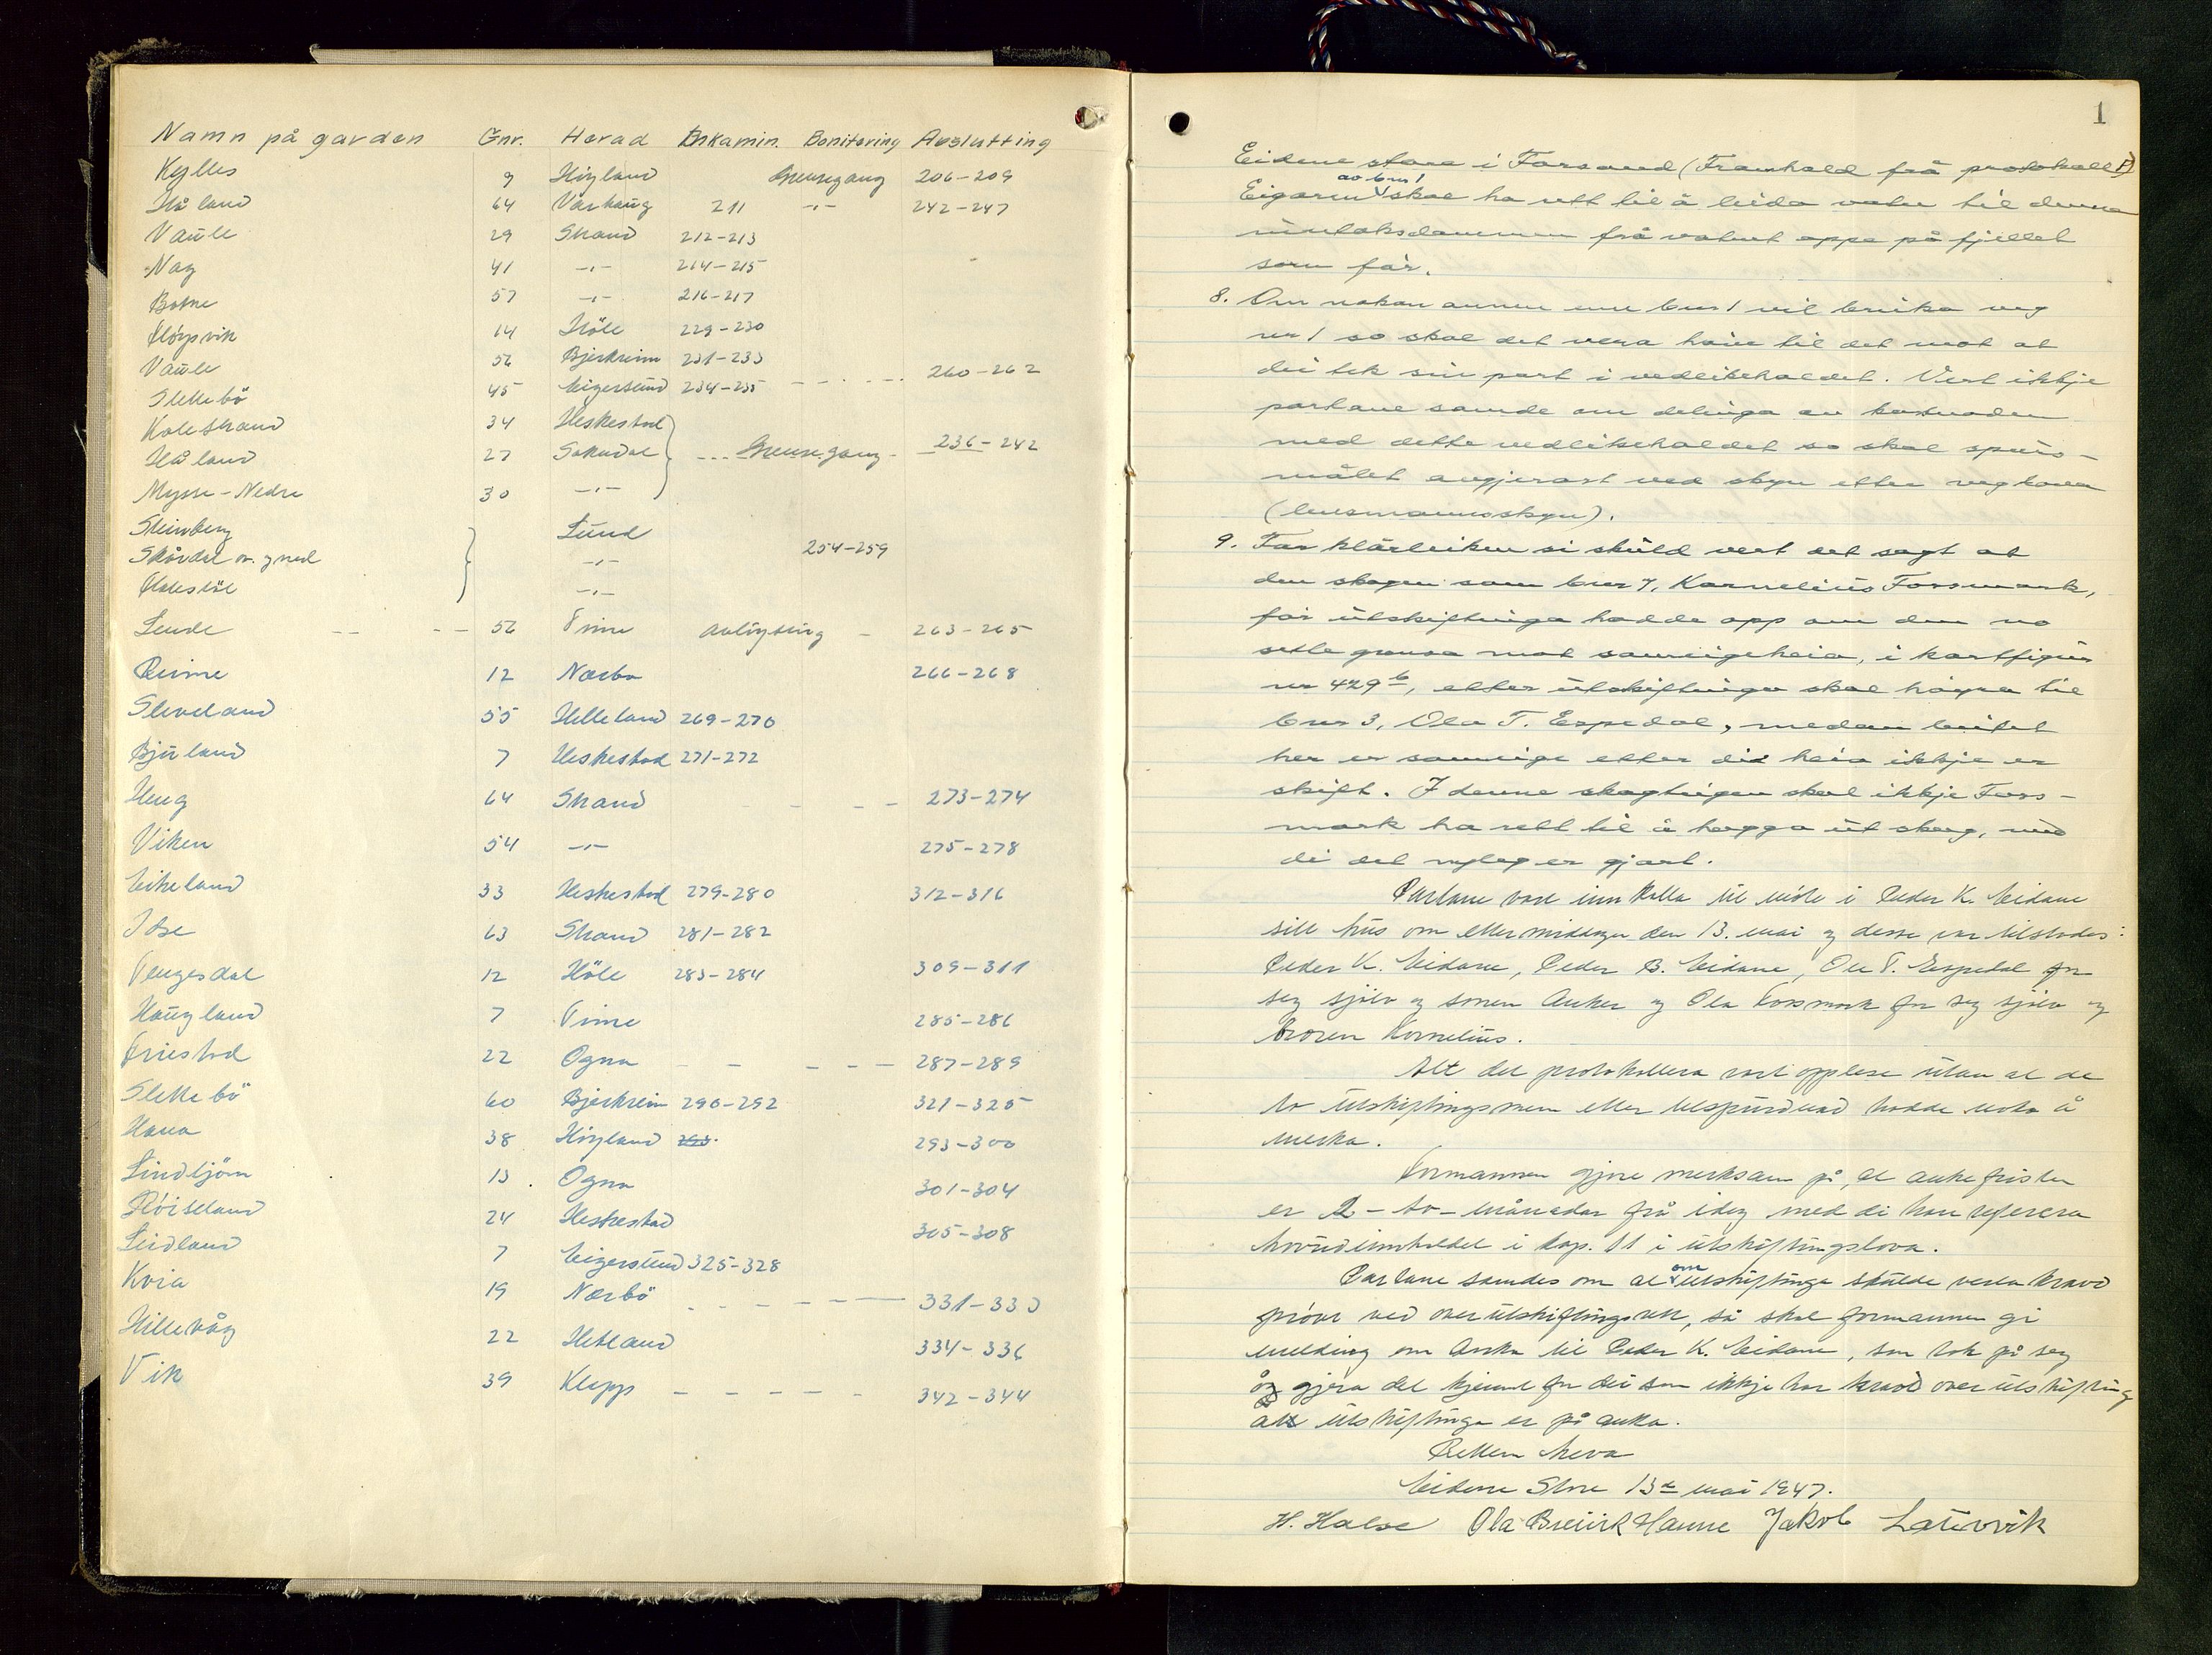 Namn på garden Gnr. Herad Enkamin. Bonitering Avslutting
Kylles 9 Høyland Grensegang 206-209
Håland 64 Varhaug 211 -"- 242-247
Vaule 29 Strand 212-213
Nag 41 -"- 214-215
Botne 57 -"- 216-217
Fløysvik 14 Høle 229-230
Vaule 56 Bjerkreim 231-233
Slettebö 45 Eigersund 234-235 260-262
Kolestrand 34 Heskestad
Håland 27 Sokndal Grensegang 236-242
Mysse-Nedre 30 -"-
Steinberg Lund
Skårdal ov. og ned -"- 254-259
-"-
Lende 56 Time avløysing 263-265
Reime 12 Nærbø 266-268
Sleveland 55 Helleland 269-270
Bjuland 7 Heskestad 271-272
Heng 64 Strand 273-274
Viken 54 -"- 275-278
Eikeland 33 Heskestad 279-280 312-316
Idse 63 Strand 281-282
Tengesdal 12 Höle 283-284 309-311
Haugland 7 Time 285-286
Friestad 22 Ogna 287-289
Slettebö 60 Bjerkreim 290-292 321-325
Hana 38 Höyland 293-300
Lindtjörn 13 Ogna 301-304
Röiseland 24 Heskestad 305-308
Leidland 7 Eigersund 325-328
Kvia 19 Nærbö 331-333
Hillevåg 22 Hetland 334-336
Vik 39 Klepp 342-344
1
Eidene store i Forsand (Framhald frå protokoll P)
Eigaren av bnr 1 skal ha rett til å leida vatn til denne
inntaksdammen frå vatnet oppe på fjellet
som før.
8. Om nokon annen enn bnr 1 vil bruka veg
nr 1 so skal det vera høve til det mot at
dei tek sin part i vedlikehaldet. Vert ikkje
partane samde om delinga av kostnaden
med dette vedlikehaldet so skal spurs-
målet avgjerast ved skyn etter veglova
(lensmannsskyn).
9. For klårleiken si skuld vert det sagt at
den skogen som bnr 7, Kornelius Fossmark,
før utskiftinga hadde opp om den no
sette grensa mot sameigeheia, i kartfigur
nr 429 b, etter utskiftinga skal høyra til
bnr 3, Ola T. Espedal, medan beitet
her er sameige etter di heia ikkje er
skift. I denne skogteigen skal ikkje Foss-
mark ha rett til å hogga ut skog, med
di det nyleg er gjort.
Partane vart innkalla til møte i Peder K. Eidane
sitt hus om ettermiddagen den 13. mai og desse var tilstades:
Peder K. Eidane, Peder B. Eidane, Ole T. Espedal for
seg sjölv og sonen Anker og Ola Fossmark for seg sjölv og
broren Kornelius.
Alt det protokollera vart opplese utan at de
to utskiftingsmenn eller tilspurdnad hadde noko å
merka.
Formannen gjore merksam på, at ankefristen
er 2 - to - månadar frå idag med di han referera
hovudinnhaldet i kap. 11 i utskiftingslova.
Partane samdes om at om utskiftinga skulde verta kravd
prövt ved overutskiftingsrett, så skal formannen gi
melding om anka til Peder K. Eidane, som tok på seg
å gjera det kjennt for dei som ikkje har kravd overutskifting
at utskiftinga er på anka.
Retten heva
Eidene Store 13de mai 1947.
H. Halse Ola Breivik Hanne Jakob Latervik